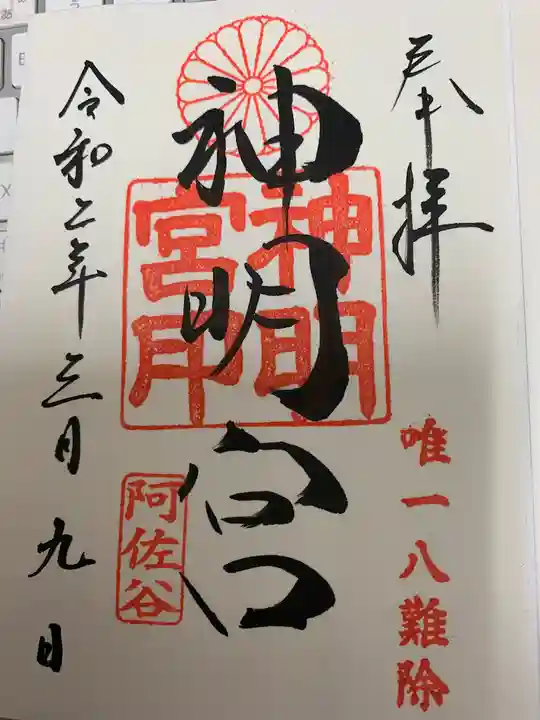 奉拝
唯一八難除
神明宮
神明
宮印
阿佐谷
令和二年三月九日